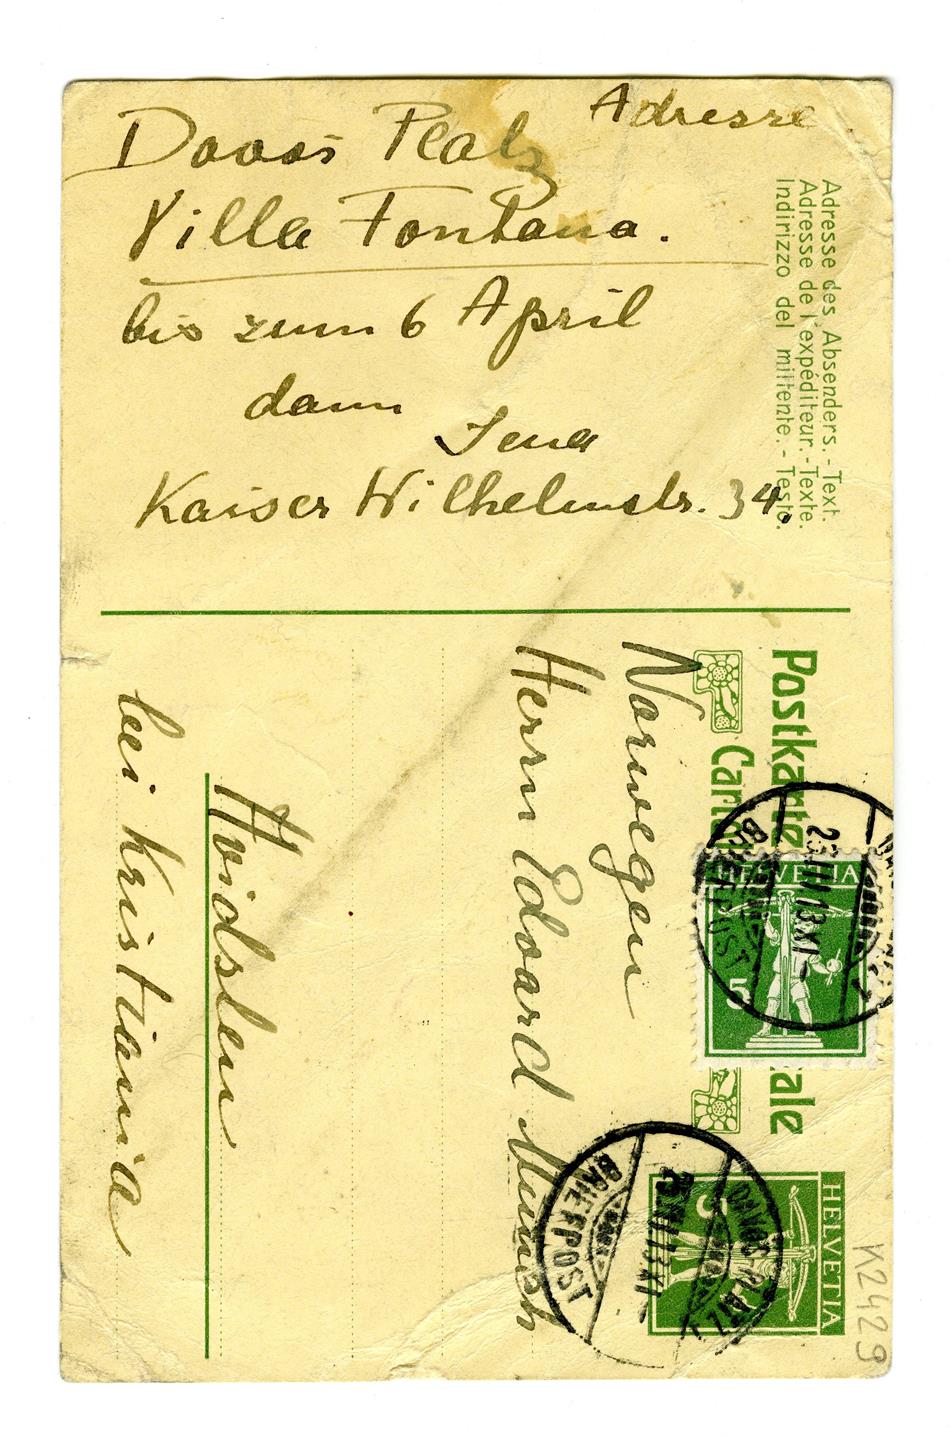 Adresse
Davos Platz
Villa Fontana.
bis zum 6 April
dann
Jena
Kaiser Wilhelmstr. 34.
Adresse des Absenders. - Text.
Adresse de l'expéditeur. - Texte.
Indirizzo del mittente. - Testo.
Postkarte
Norwegen
Herrn Edvard Munch
Hvidsten
bei Kristiania
HELVETIA
5
BRIEFPOST
HELVETIA
5
DAVOS-PLATZ
BRIEFPOST
K2429